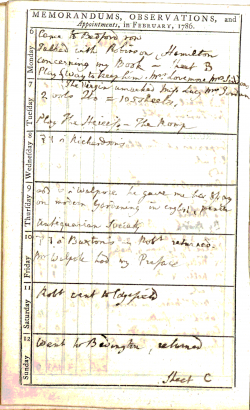 MEMORANDUMS, OBSERVATIONS, and
Appointments, in FEBRUARY, 1786.
6
Monday
Came to Bedford row
Talked with Robinson, Hamilton
concerning my Book – Sheet B
Play Way to keep him. Mrs Lovemore Mrs Siddons
7
Tuesday
The Virgin unmasked Miss Lucy Mrs Jordan
2 vols = 105 sheets.
Play The Heiress – The Romp
8
Wednesday
Richardsons
9
Thursday
Walpole he gave me his Essay
on modern Gardening in english & french
Antiquarian Society
10
Friday
Burtons Robt returned
Mr Walpole had my Preface
11
Saturday
Robt went to Edgefield
12
Sunday
Went to Bevington, returned
Sheet C